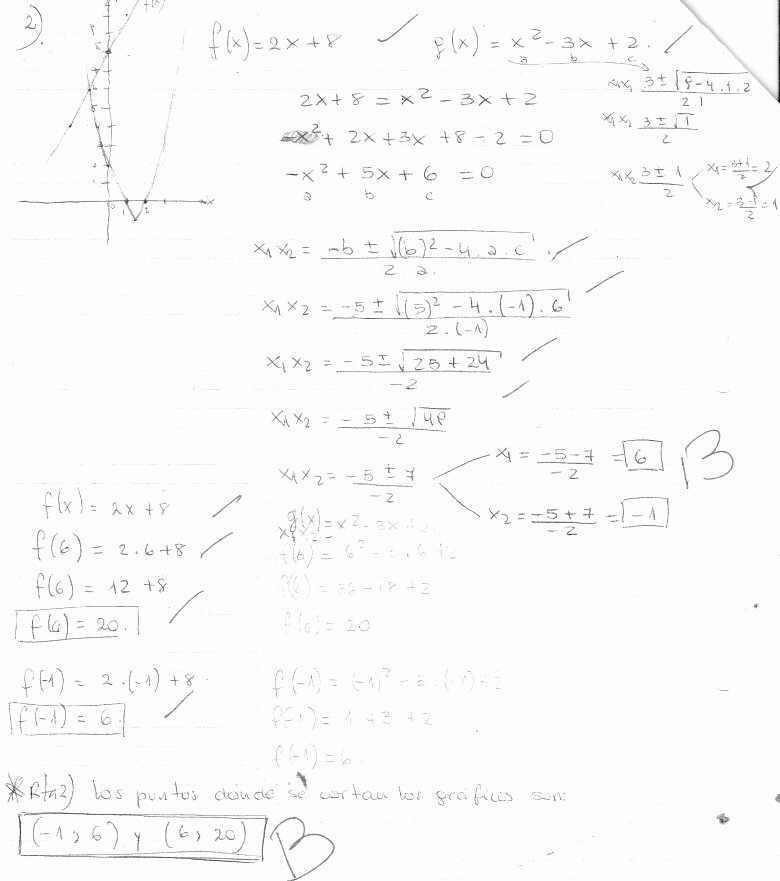 2)
f(x)
f(x) = 2x + 8
g(x) = x² - 3x + 2.
a b c
2x + 8 = x² - 3x + 2
-x² + 2x + 3x + 8 - 2 = 0
-x² + 5x + 6 = 0
a b c
x₁x₂ 3 ± √9 - 4.1.2 / 2 1
x₁x₂ 3 ± √1 / 2
x₁x₂ 3 ± 1 / 2
x₁ = 3+1 / 2 = 2
x₂ = 3-1 / 2 = 1
0 1 2 x
x₁ x₂ = -b ± √(b)² - 4 . a . c / 2 a.
x₁ x₂ = -5 ± √(5)² - 4 . (-1) . 6 / 2 . (-1)
x₁ x₂ = -5 ± √25 + 24 / -2
x₁ x₂ = -5 ± √49 / -2
x₁ x₂ = -5 ± 7 / -2
x₁ = -5 - 7 / -2 = 6
B
x₂ = -5 + 7 / -2 = -1
f(x) = 2x + 8
f(6) = 2.6 + 8
f(6) = 12 + 8
f(6) = 20.
g(x) = x² - 3x + 2
f(6) = 36 - 18 + 2
f(6) = 20
f(-1) = 2 . (-1) + 8
f(-1) = 6.
f(-1) = (-1)² - 3 . (-1) + 2
f(-1) = 1 + 3 + 2
f(-1) = 6.
* Rta 2) los puntos donde se cortan los gráficos son:
(-1 ; 6) y (6 ; 20)
B